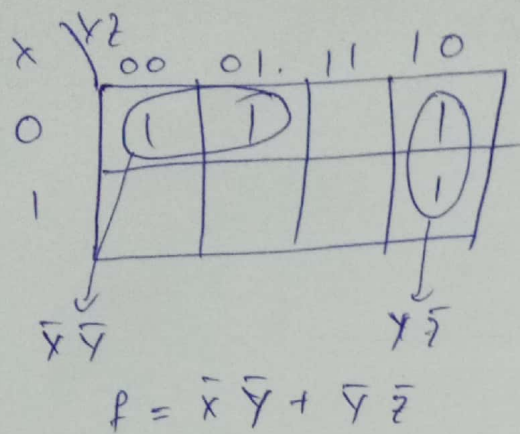 X YZ 00 01. 11 10
0 1 1 1
1 1
X̄ Ȳ Y Z̄
f = X̄ Ȳ + Ȳ Z̄